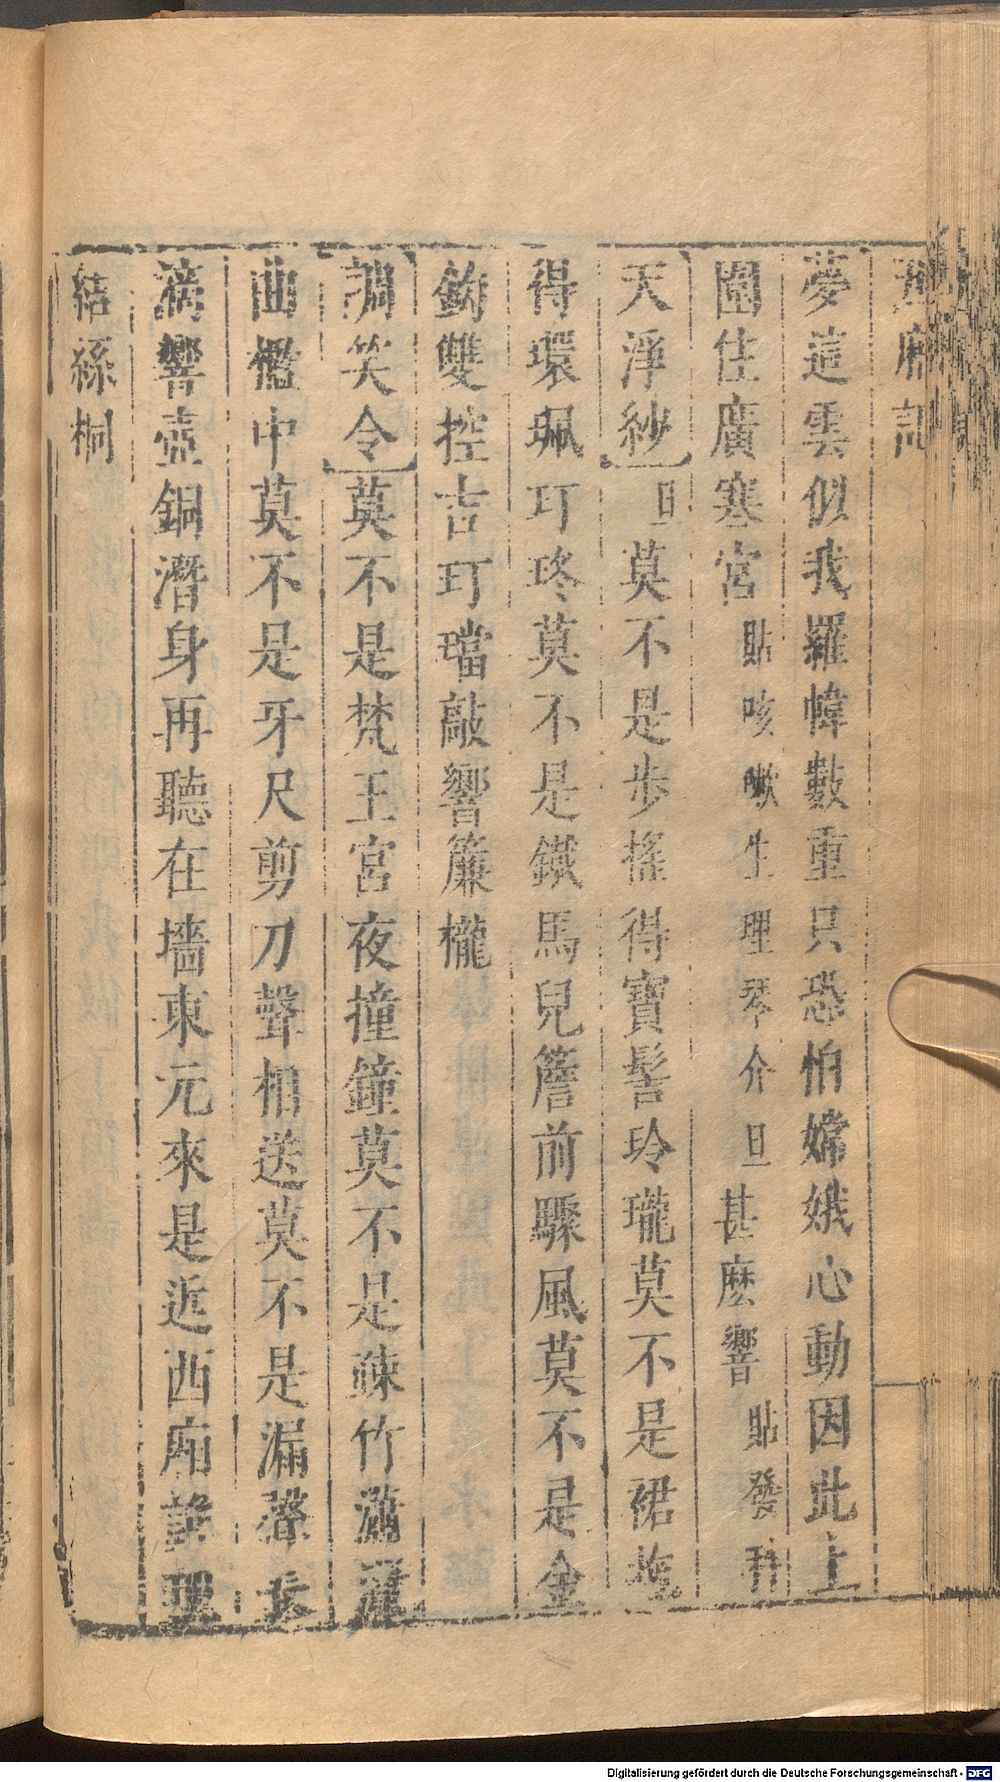 西廂記
夢這雲似我羅幃數重只恐怕嫦娥心動因此上
圍住廣寒宮貼咳嗽生理琴介旦甚麽響貼發科
天淨紗旦莫不是步搖得寶髻玲瓏莫不是裙拖
得環珮玎玲莫不是鐵馬兒簷前驟風莫不是金
鈎雙控吉玎璫敲響簾櫳
調笑令莫不是梵王宮夜撞鐘莫不是疎竹瀟灑
曲檻中莫不是牙尺剪刀聲相送莫不是漏聲長
滴響壺銅潛身再聽在墻東元來是近西廂誰理
結絲桐
Digitalisierung gefördert durch die Deutsche Forschungsgemeinschaft - DFG